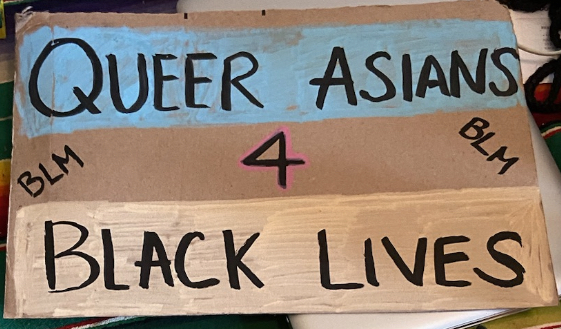 QUEER ASIANS
4
BLM
BLM
BLACK LIVES